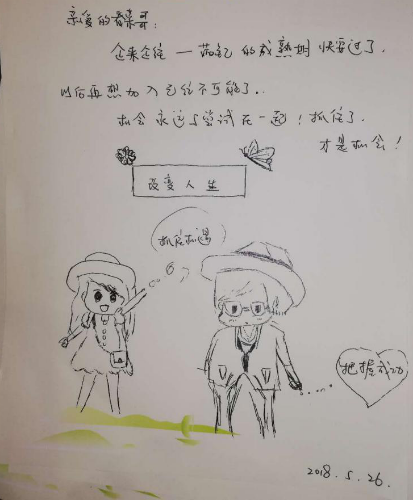 亲爱的春荣哥:
企来企往一茄记的成熟期快要过了.
以后再想加入已经不可能了..
机会永远与尝试在一起!抓住了
才是机会!
改变人生
抓住机遇
把握成功
2018.5.26.